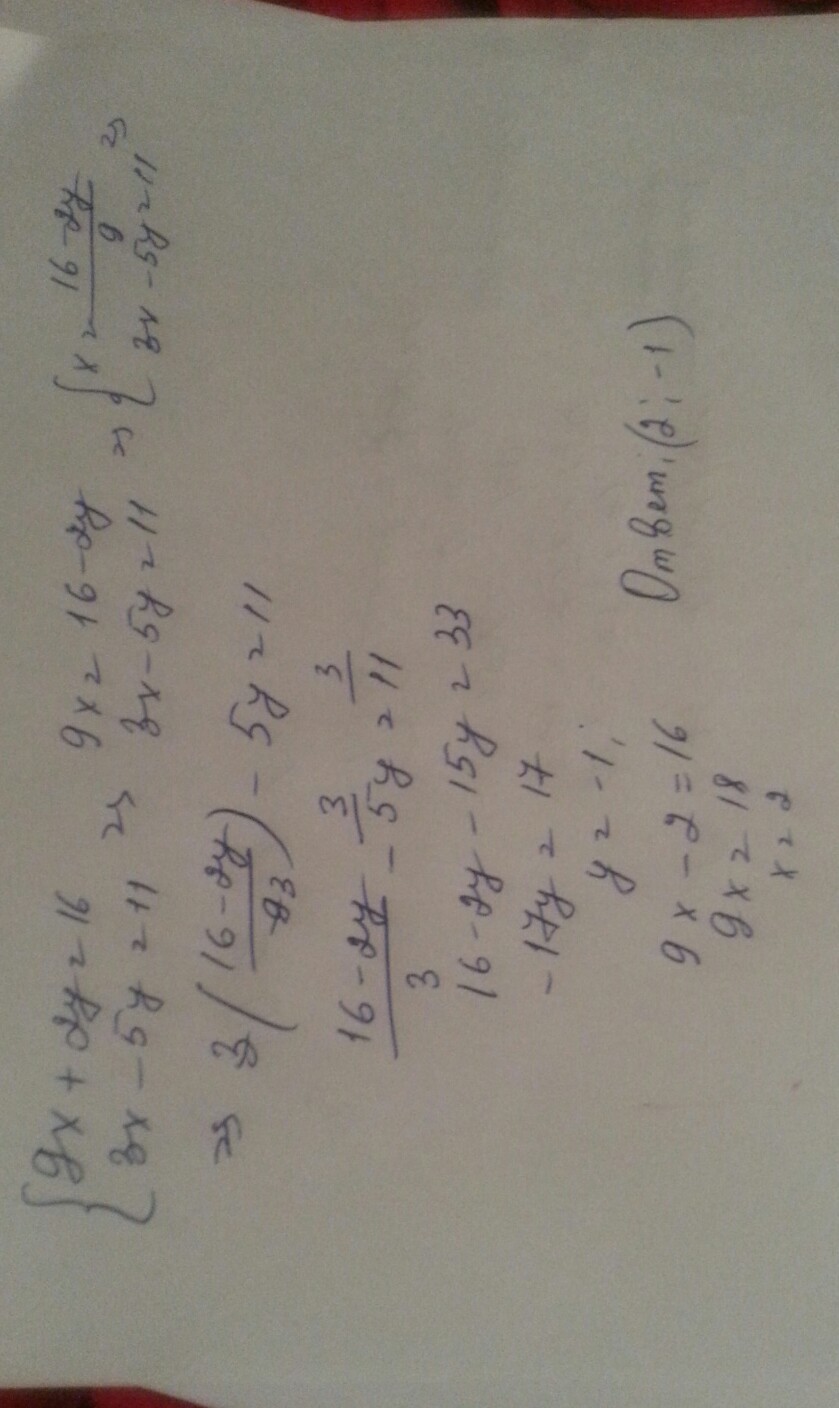 {9x + 2y = 16 => 9x = 16-2y => {x = 16-2y/9 =>
{3x - 5y = 11 3x - 5y = 11 {3x - 5y = 11
=> 3(16-2y/93) - 5y = 11
16-2y/3 - 3/5y = 3/11
16-2y - 15y = 33
-17y = 17
y = -1;
9x - 2 = 16
9x = 18
x = 2
Ответ, (2; -1)